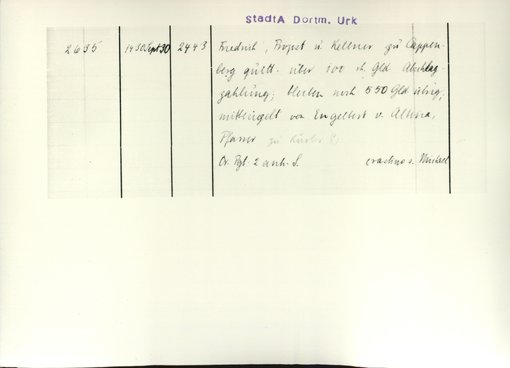 StadtA Dortm. Urk
2695 1430 Sept 30 2443 Friedrich, Propst u Kellner zu Cappen-
berg quitt. über 100 rh. Gld Abschlag-
zahlung; bleiben noch 550 Gld übrig;
mitbesiegelt von Engelbert v. Altena,
Pfarrer zu
Or. Pgt. 2 anh. S. crastino s. Michael